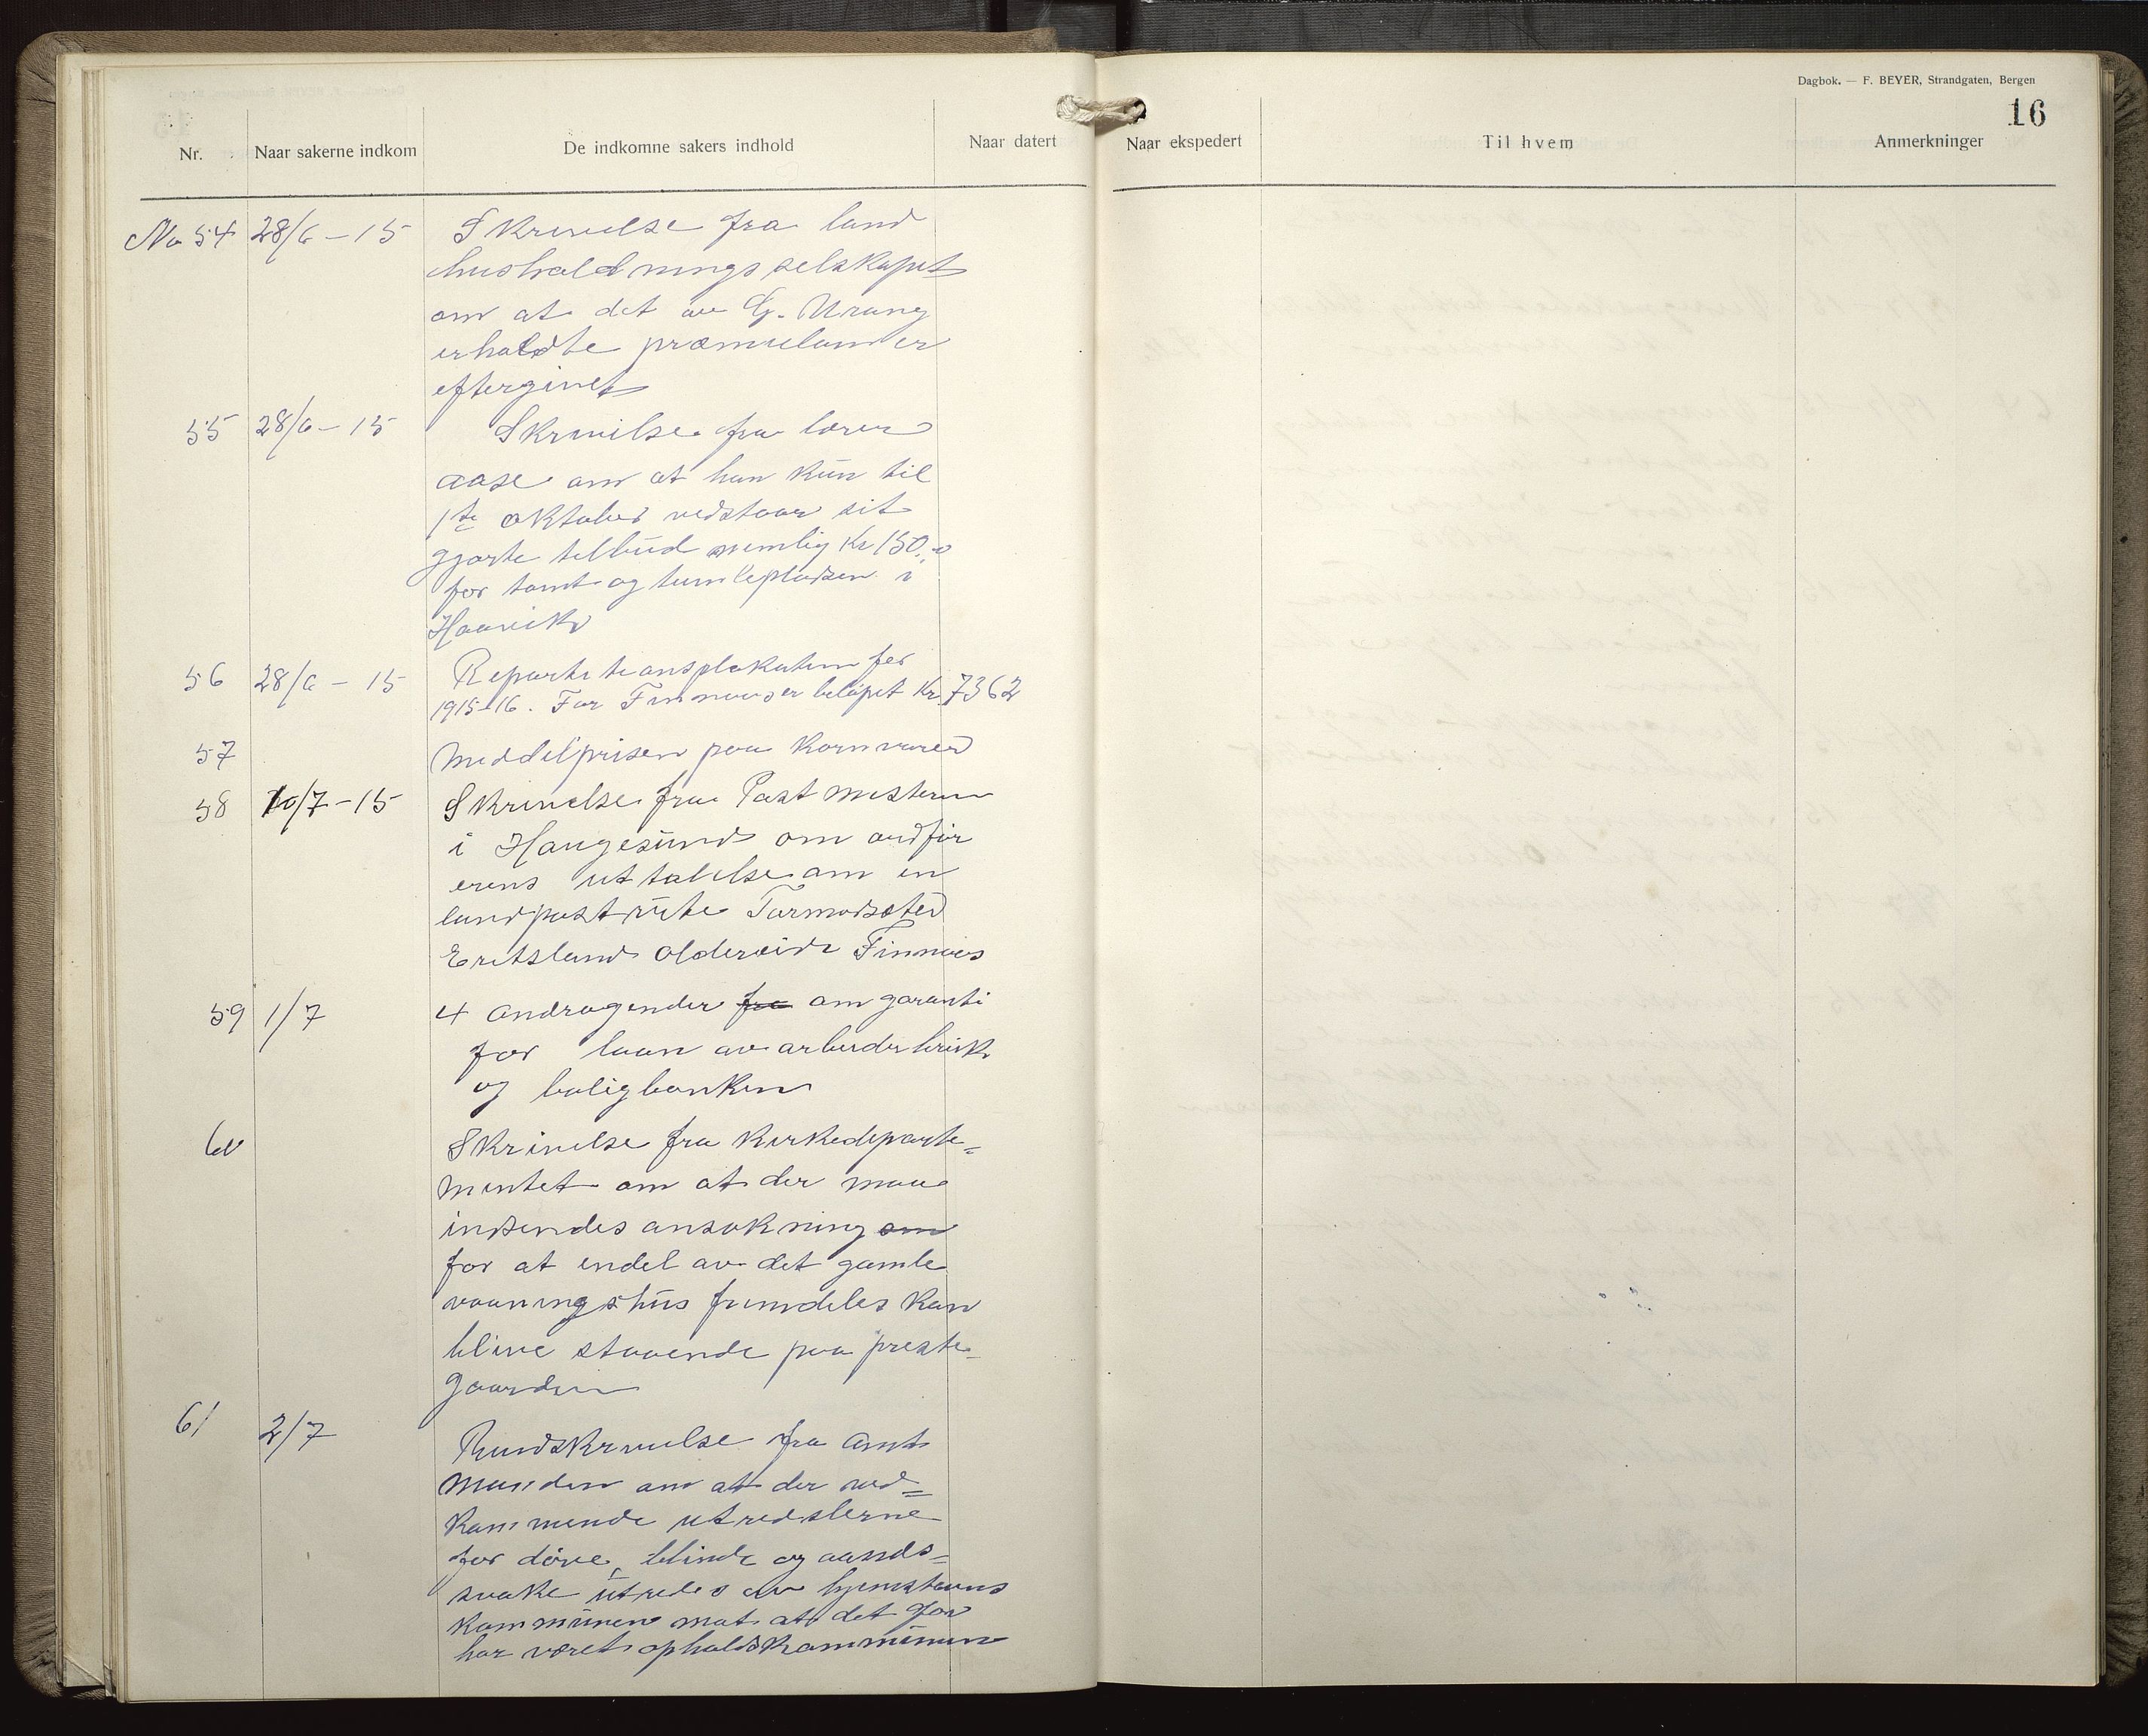 Dagbok. — F. BEYER, Strandgaten, Bergen
16
Nr. Naar sakerne indkom De indkomne sakers indhold Naar datert Naar ekspedert Til hvem Anmerkninger
No 54 28/6 - 15 Skrivelse fra land
husholdningsselskapet
om at det av G. Urang
erholdte præmielaan er
eftergivet
55 28/6 - 15 Skrivelse fra lærer
Aase om at han kun til
1ste oktober vedstaar sit
gjorte tilbud nemlig Kr 150.-
for tomt og tumlepladsen i
Haavik
56 28/6 - 15 Repartitionsplakaten for
1915-16. For Finnaas er beløpet Kr. 7362
57 Middelprisen paa Kornvarer
58 10/7 - 15 Skrivelse fra Postmesteren
i Haugesund om ordfør
erens uttalelse om en
landpostrute Tormodsæter
Eritsland Oldereide Finnaas
59 1/7 4 andragender fra om garanti
for laan av arbeiderbruk
og boligbanken
60 Skrivelse fra Kirkedeparte=
mentet om at der maa
indsendes ansøkning om
for at endel av det gamle
vaaningshus fremdeles kan
blive staaende paa preste-
gaarden
61 2/7 Rundskrivelse fra Amt
manden om at der ved=
kommende utredslerne
for døve, blinde og aands=
svake utredes av hjemstavns
kommunen mot at det før
har været opholdskommunen